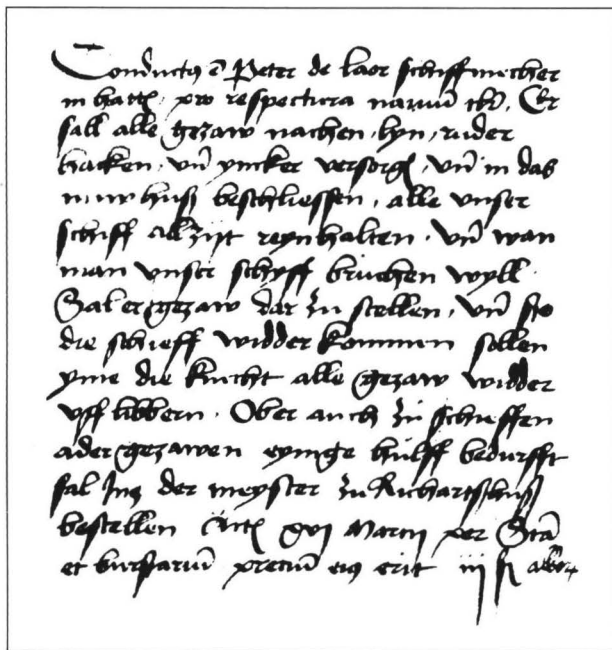 Conductus e Peter de laer schiffmecher
in hatt pro respectura navium ibi. Er
sall alle gezaw nachen, lyn, ruder
hacken, vnd yncker versorgen, vnd in das
nuw huß beschliessen, alle vnser
schiff all zijt reyn halten. vnd wan
man vnser schyff bruchen wyll
Sal er gezaw dar zu stellen, vnd so
die schieff widder kommen sollen
yme die knecht alle gezaw widder
vff libbern. Ober auch zu schieffen
ader gezawen eynige hulff bedurfft
sal Ine der meyster zu Richartzhuß
bestellen Act xvj Marcij per
et bursarium precium eius erit iij fl